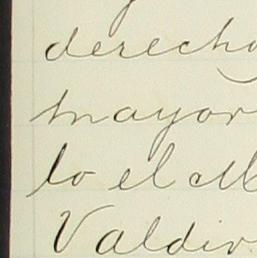 derecho
mayor
lo el M
Valdiv